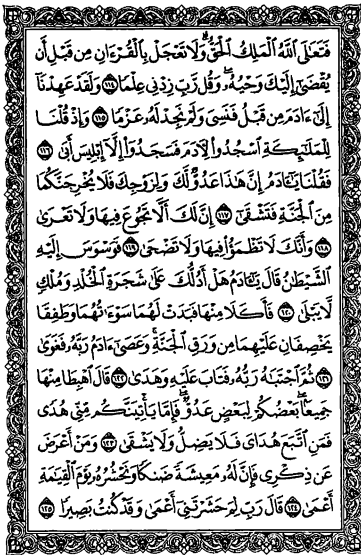 فَتَعَٰلَى ٱللَّهُ ٱلۡمَلِكُ ٱلۡحَقُّۗ وَلَا تَعۡجَلۡ بِٱلۡقُرۡءَانِ مِن قَبۡلِ أَن
يُقۡضَىٰٓ إِلَيۡكَ وَحۡيُهُۥۖ وَقُل رَّبِّ زِدۡنِي عِلۡمٗا ١١٤ وَلَقَدۡ عَهِدۡنَآ
إِلَىٰٓ ءَادَمَ مِن قَبۡلُ فَنَسِيَ وَلَمۡ نَجِدۡ لَهُۥ عَزۡمٗا ١١٥ وَإِذۡ قُلۡنَا
لِلۡمَلَٰٓئِكَةِ ٱسۡجُدُواْ لِأٓدَمَ فَسَجَدُوٓاْ إِلَّآ إِبۡلِيسَ أَبَىٰ ١١٦
فَقُلۡنَا يَٰٓـَٔادَمُ إِنَّ هَٰذَا عَدُوّٞ لَّكَ وَلِزَوۡجِكَ فَلَا يُخۡرِجَنَّكُمَا
مِنَ ٱلۡجَنَّةِ فَتَشۡقَىٰٓ ١١٧ إِنَّ لَكَ أَلَّا تَجُوعَ فِيهَا وَلَا تَعۡرَىٰ
١١٨ وَأَنَّكَ لَا تَظۡمَؤُاْ فِيهَا وَلَا تَضۡحَىٰ ١١٩ فَوَسۡوَسَ إِلَيۡهِ
ٱلشَّيۡطَٰنُ قَالَ يَٰٓـَٔادَمُ هَلۡ أَدُلُّكَ عَلَىٰ شَجَرَةِ ٱلۡخُلۡدِ وَمُلۡكٖ
لَّا يَبۡلَىٰ ١٢٠ فَأَكَلَا مِنۡهَا فَبَدَتۡ لَهُمَا سَوۡءَٰتُهُمَا وَطَفِقَا
يَخۡصِفَانِ عَلَيۡهِمَا مِن وَرَقِ ٱلۡجَنَّةِۚ وَعَصَىٰٓ ءَادَمُ رَبَّهُۥ فَغَوَىٰ
١٢١ ثُمَّ ٱجۡتَبَٰهُ رَبُّهُۥ فَتَابَ عَلَيۡهِ وَهَدَىٰ ١٢٢ قَالَ ٱهۡبِطَا مِنۡهَا
جَمِيعَۢاۖ بَعۡضُكُمۡ لِبَعۡضٍ عَدُوّٞۖ فَإِمَّا يَأۡتِيَنَّكُم مِّنِّي هُدٗى
فَمَنِ ٱتَّبَعَ هُدَايَ فَلَا يَضِلُّ وَلَا يَشۡقَىٰ ١٢٣ وَمَنۡ أَعۡرَضَ
عَن ذِكۡرِي فَإِنَّ لَهُۥ مَعِيشَةٗ ضَنكٗا وَنَحۡشُرُهُۥ يَوۡمَ ٱلۡقِيَٰمَةِ
أَعۡمَىٰ ١٢٤ قَالَ رَبِّ لِمَ حَشَرۡتَنِيٓ أَعۡمَىٰ وَقَدۡ كُنتُ بَصِيرٗا ١٢٥